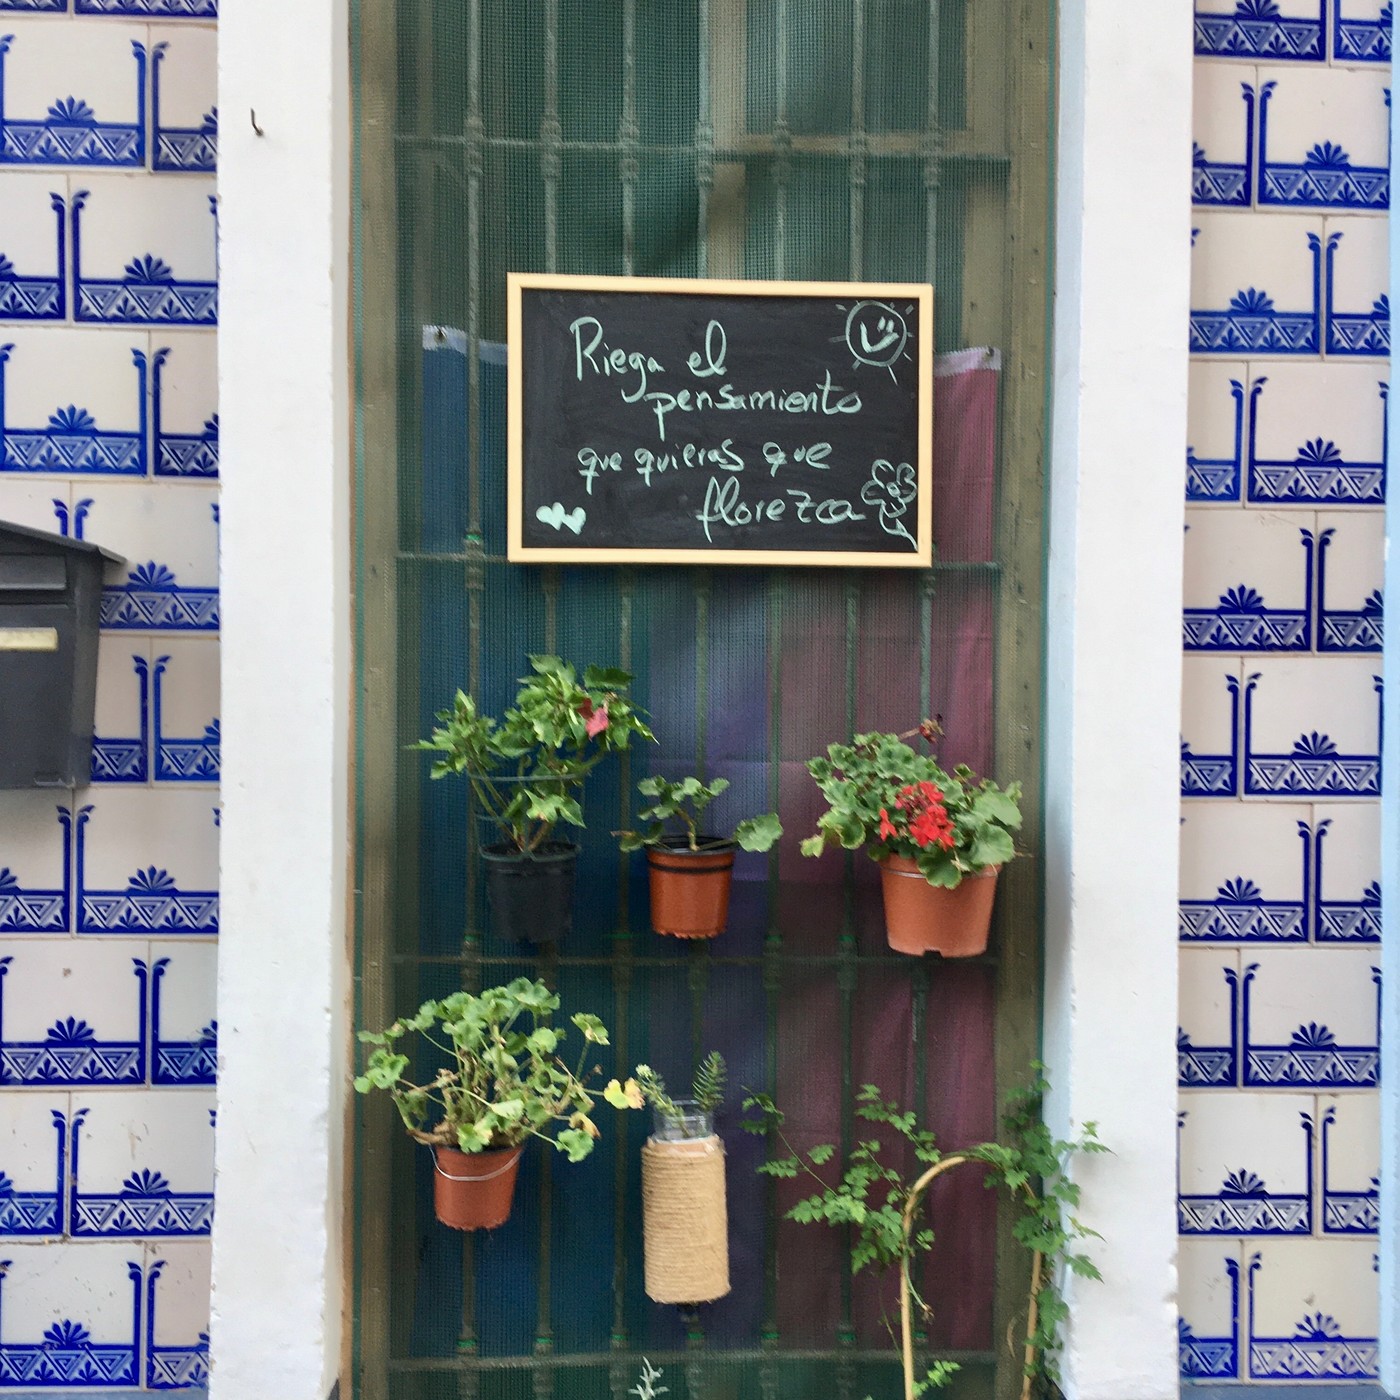 Riega el
pensamiento
que quieras que
florezca